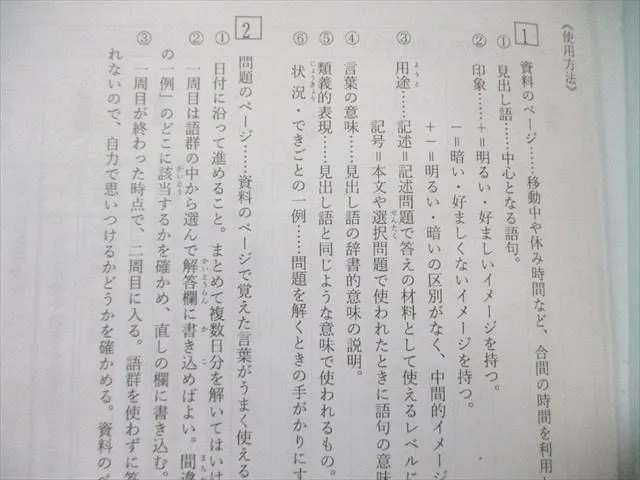 《使用方法》
1 資料のページ……移動中や休み時間など、合間の時間を利用
① 見出し語……中心となる語句。
② 印象……＋＝明るい・好ましいイメージを持つ。
－＝暗い・好ましくないイメージを持つ。
＋－＝明るい・暗いの区別がなく、中間的イメージ
③ 用途……記述＝記述問題で答えの材料として使えるレベルに
記号＝本文や選択問題で使われたときに語句の意味
④ 言葉の意味……見出し語の辞書的意味の説明。
⑤ 類義的表現……見出し語と同じような意味で使われるもの。
⑥ 状況・できごとの一例……問題を解くときの手がかりにす
2 問題のページ……資料のページで覚えた言葉がうまく使える
① 日付に沿って進めること。まとめて複数日分を解いてはいけ
② 一周目は語群の中から選んで解答欄に書き込めばよい。間違
の一例」のどこに該当するかを確かめ、直しの欄に書き込む。
③ 一周目が終わった時点で、二周目に入る。語群を使わずに答
れないので、自力で思いつけるかどうかを確かめる。資料のペ